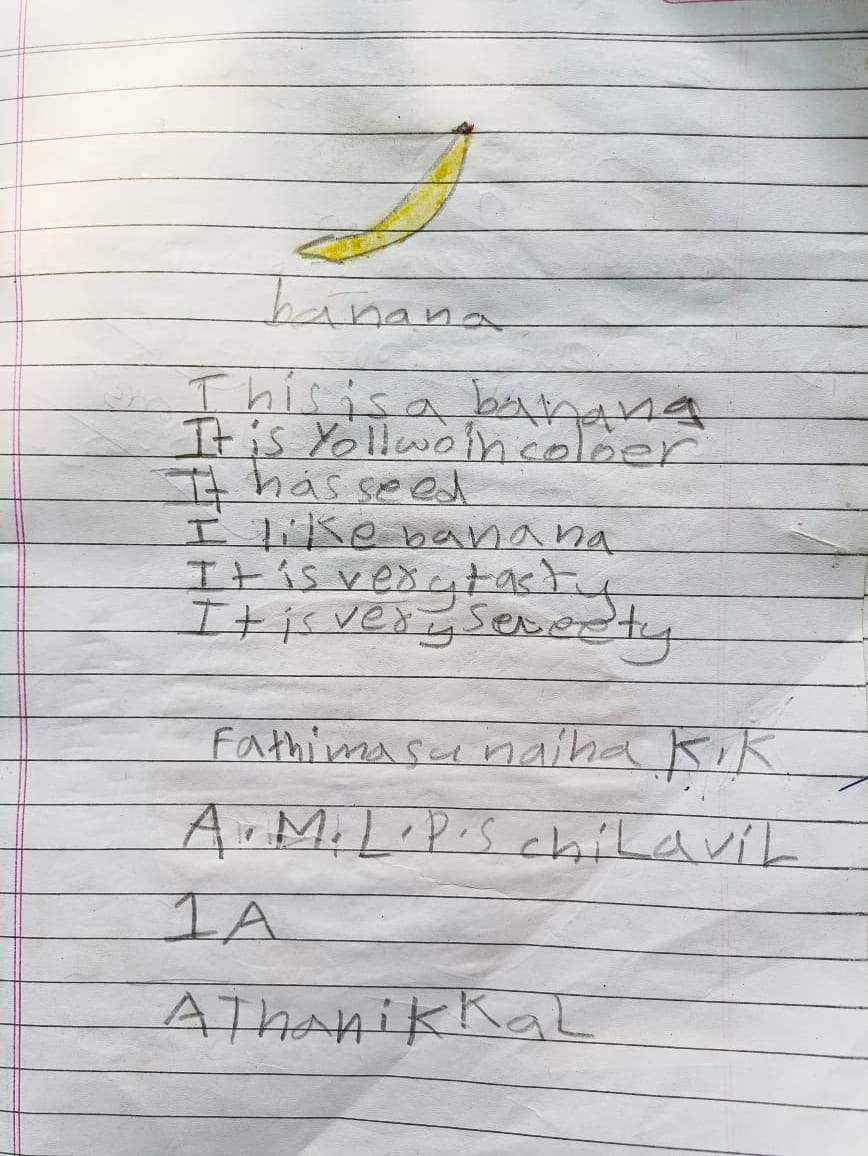 banana
This is a banana
It is Yollwo in coloer
It has seed
I like banana
It is very tasty
It is very seweety
Fathima su naiha K.K
A.M.L.P.S chiLaviL
1A
AThanikkaL